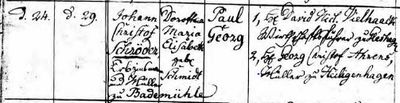 d. 24.
d. 29.
Johann
Christof
Schröder
Erbzinsm.
u. Müller
zu Bademühle
Dorothea
Maria
Elisabeth
geb.
Schmidt
Paul
Georg
1, David
zu
2, Georg Christof Ahrens,
Müller zu Heiligenhagen